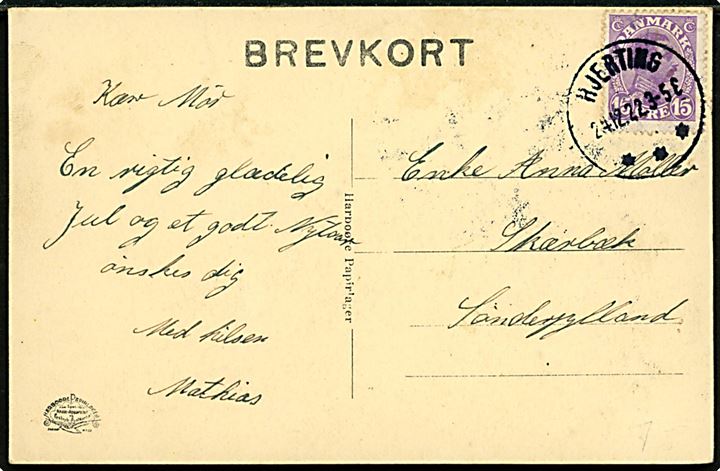 BREVKORT
DANMARK
15 ØRE 15
HJERTING
24.12.22.3-5E
Kær Mor
En rigtig glædelig
Jul og et godt Nytaar
ønskes dig
Med hilsen
Mathias
Harboøre Papirlager
Enke Anna Møller
Skærbæk
Sønderjylland